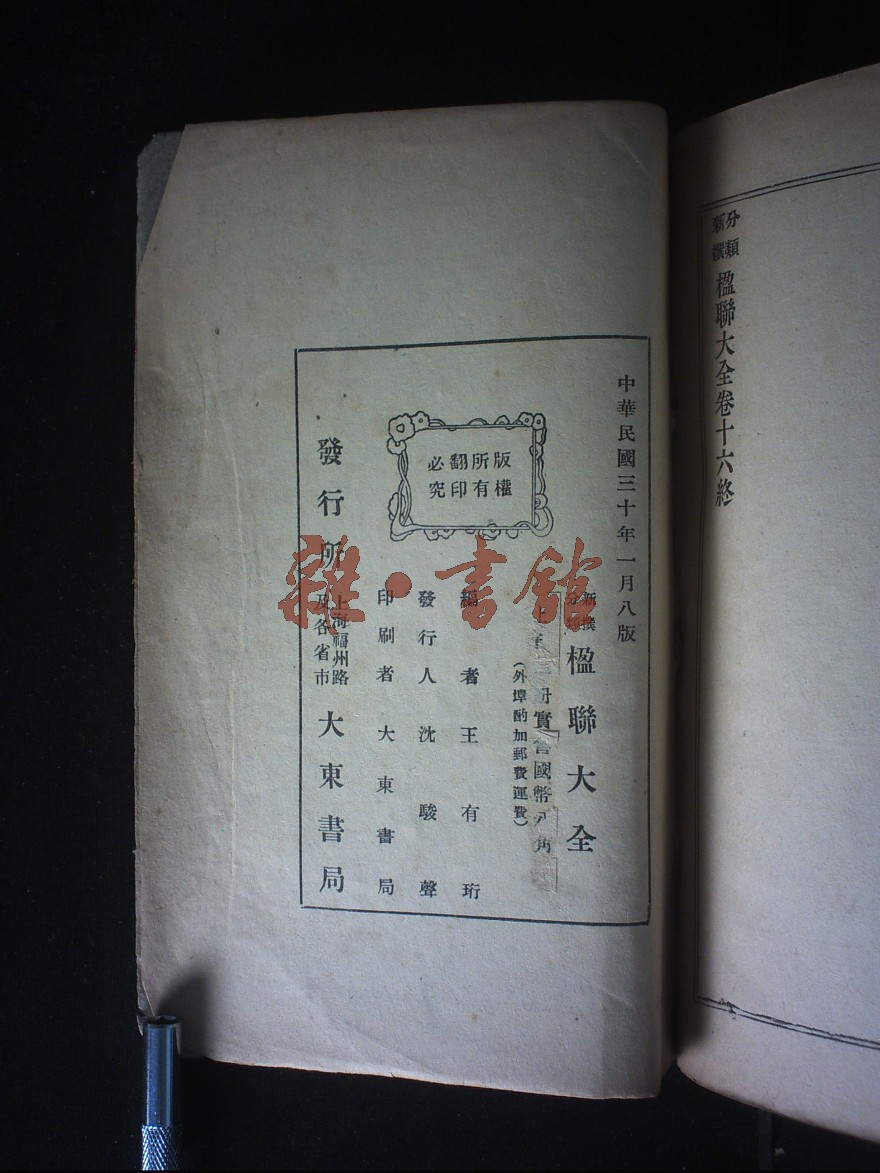 分類
新撰
楹聯大全卷十六終
中華民國三十年一月八版
新撰
分類
楹聯大全
冊實售國幣 角
(外埠酌加郵費運費)
編者王有珩
發行人沈駿聲
印刷者大東書局
發行所
上海福州路
及各省市
大東書局
版權
所有
翻印
必究
雜·書館